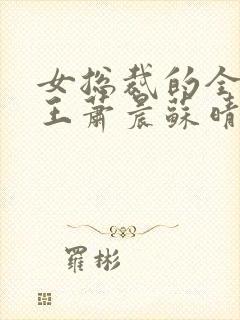 女総裁的全
王蕭晨蘇晴
羅彬